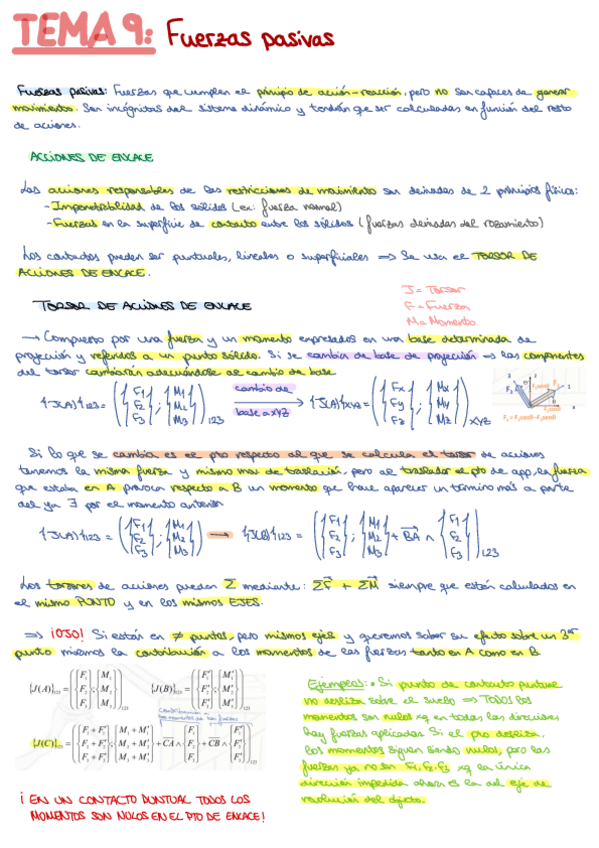 TEMA 9: Fuerzas pasivas
Fuerzas pasivas: Fuerzas que cumplen el principio de acción-reacción, pero no son capaces de generar
movimiento. Son incógnitas del sistema dinámico y tendrán que ser calculadas en función del resto
de acciones.
ACCIONES DE ENLACE
Las acciones responsables de las restricciones de movimiento son derivadas de 2 principios físicos:
- Impenetrabilidad de los sólidos (ex: fuerza normal)
- Fuerzas en la superficie de contacto entre los sólidos (fuerzas derivadas del rozamiento)
Los contactos pueden ser puntuales, lineales o superficiales => Se usa el TORSOR DE
ACCIONES DE ENLACE.
J = Torsor
F = Fuerza
M = Momento
TORSOR DE ACCIONES DE ENLACE
→ Compuesto por una fuerza y un momento expresados en una base determinada de
proyección y referidos a un punto sólido. Si se cambia de base de proyección => las componentes
del torsor cambiarán adecuándose al cambio de base
{J(A)}123 = ({F1 F2 F3} ; {M1 M2 M3})123 cambio de base a XYZ → {J(A)}XYZ = ({Fx Fy Fz} ; {Mx My Mz})XYZ
Si lo que se cambia es el pto respecto al que se calcula el torsor de acciones
tenemos la misma fuerza y mismo mov de traslación, pero al trasladar el pto de app, la fuerza
que estaba en A provoca respecto a B un momento que hace aparecer un término más a parte
del ya ∃ por el momento anterior
{J(A)}123 = ({F1 F2 F3} ; {M1 M2 M3})123 → {J(B)}123 = ({F1 F2 F3} ; {M1 M2 M3} + BA ∧ {F1 F2 F3})123
Los torsores de acciones pueden Σ mediante: ΣF + ΣM siempre que estén calculados en
el mismo PUNTO y en los mismos EJES.
=> ¡OJO! Si están en ≠ puntos, pero mismos ejes y queremos saber su efecto sobre un 3er
punto miramos la contribución a los momentos de las fuerzas tanto en A como en B
{J(A)}123 = ({F1 F2 F3} ; {M1 M2 M3})123 {J(B)}123 = ({F1' F2' F3'} ; {M1' M2' M3'})123
contribución a
los momentos de las fuerzas
{J(C)}123 = ({F1+F1' F2+F2' F3+F3'} ; {M1+M1' M2+M2' M3+M3'} + CA ∧ {F1 F2 F3} + CB ∧ {F1' F2' F3'})123
¡EN UN CONTACTO PUNTUAL TODOS LOS
MOMENTOS SON NULOS EN EL PTO DE ENLACE!
Ejemplos: • Si punto de contacto puntual
no desliza sobre el suelo => TODOS los
momentos son nulos xq en todas las direcciones
hay fuerzas aplicadas. Si el pto desliza,
los momentos siguen siendo nulos, pero las
fuerzas ya no son F1, F2, F3 xq la única
dirección impedida ahora es la del eje de
revolución del objeto.